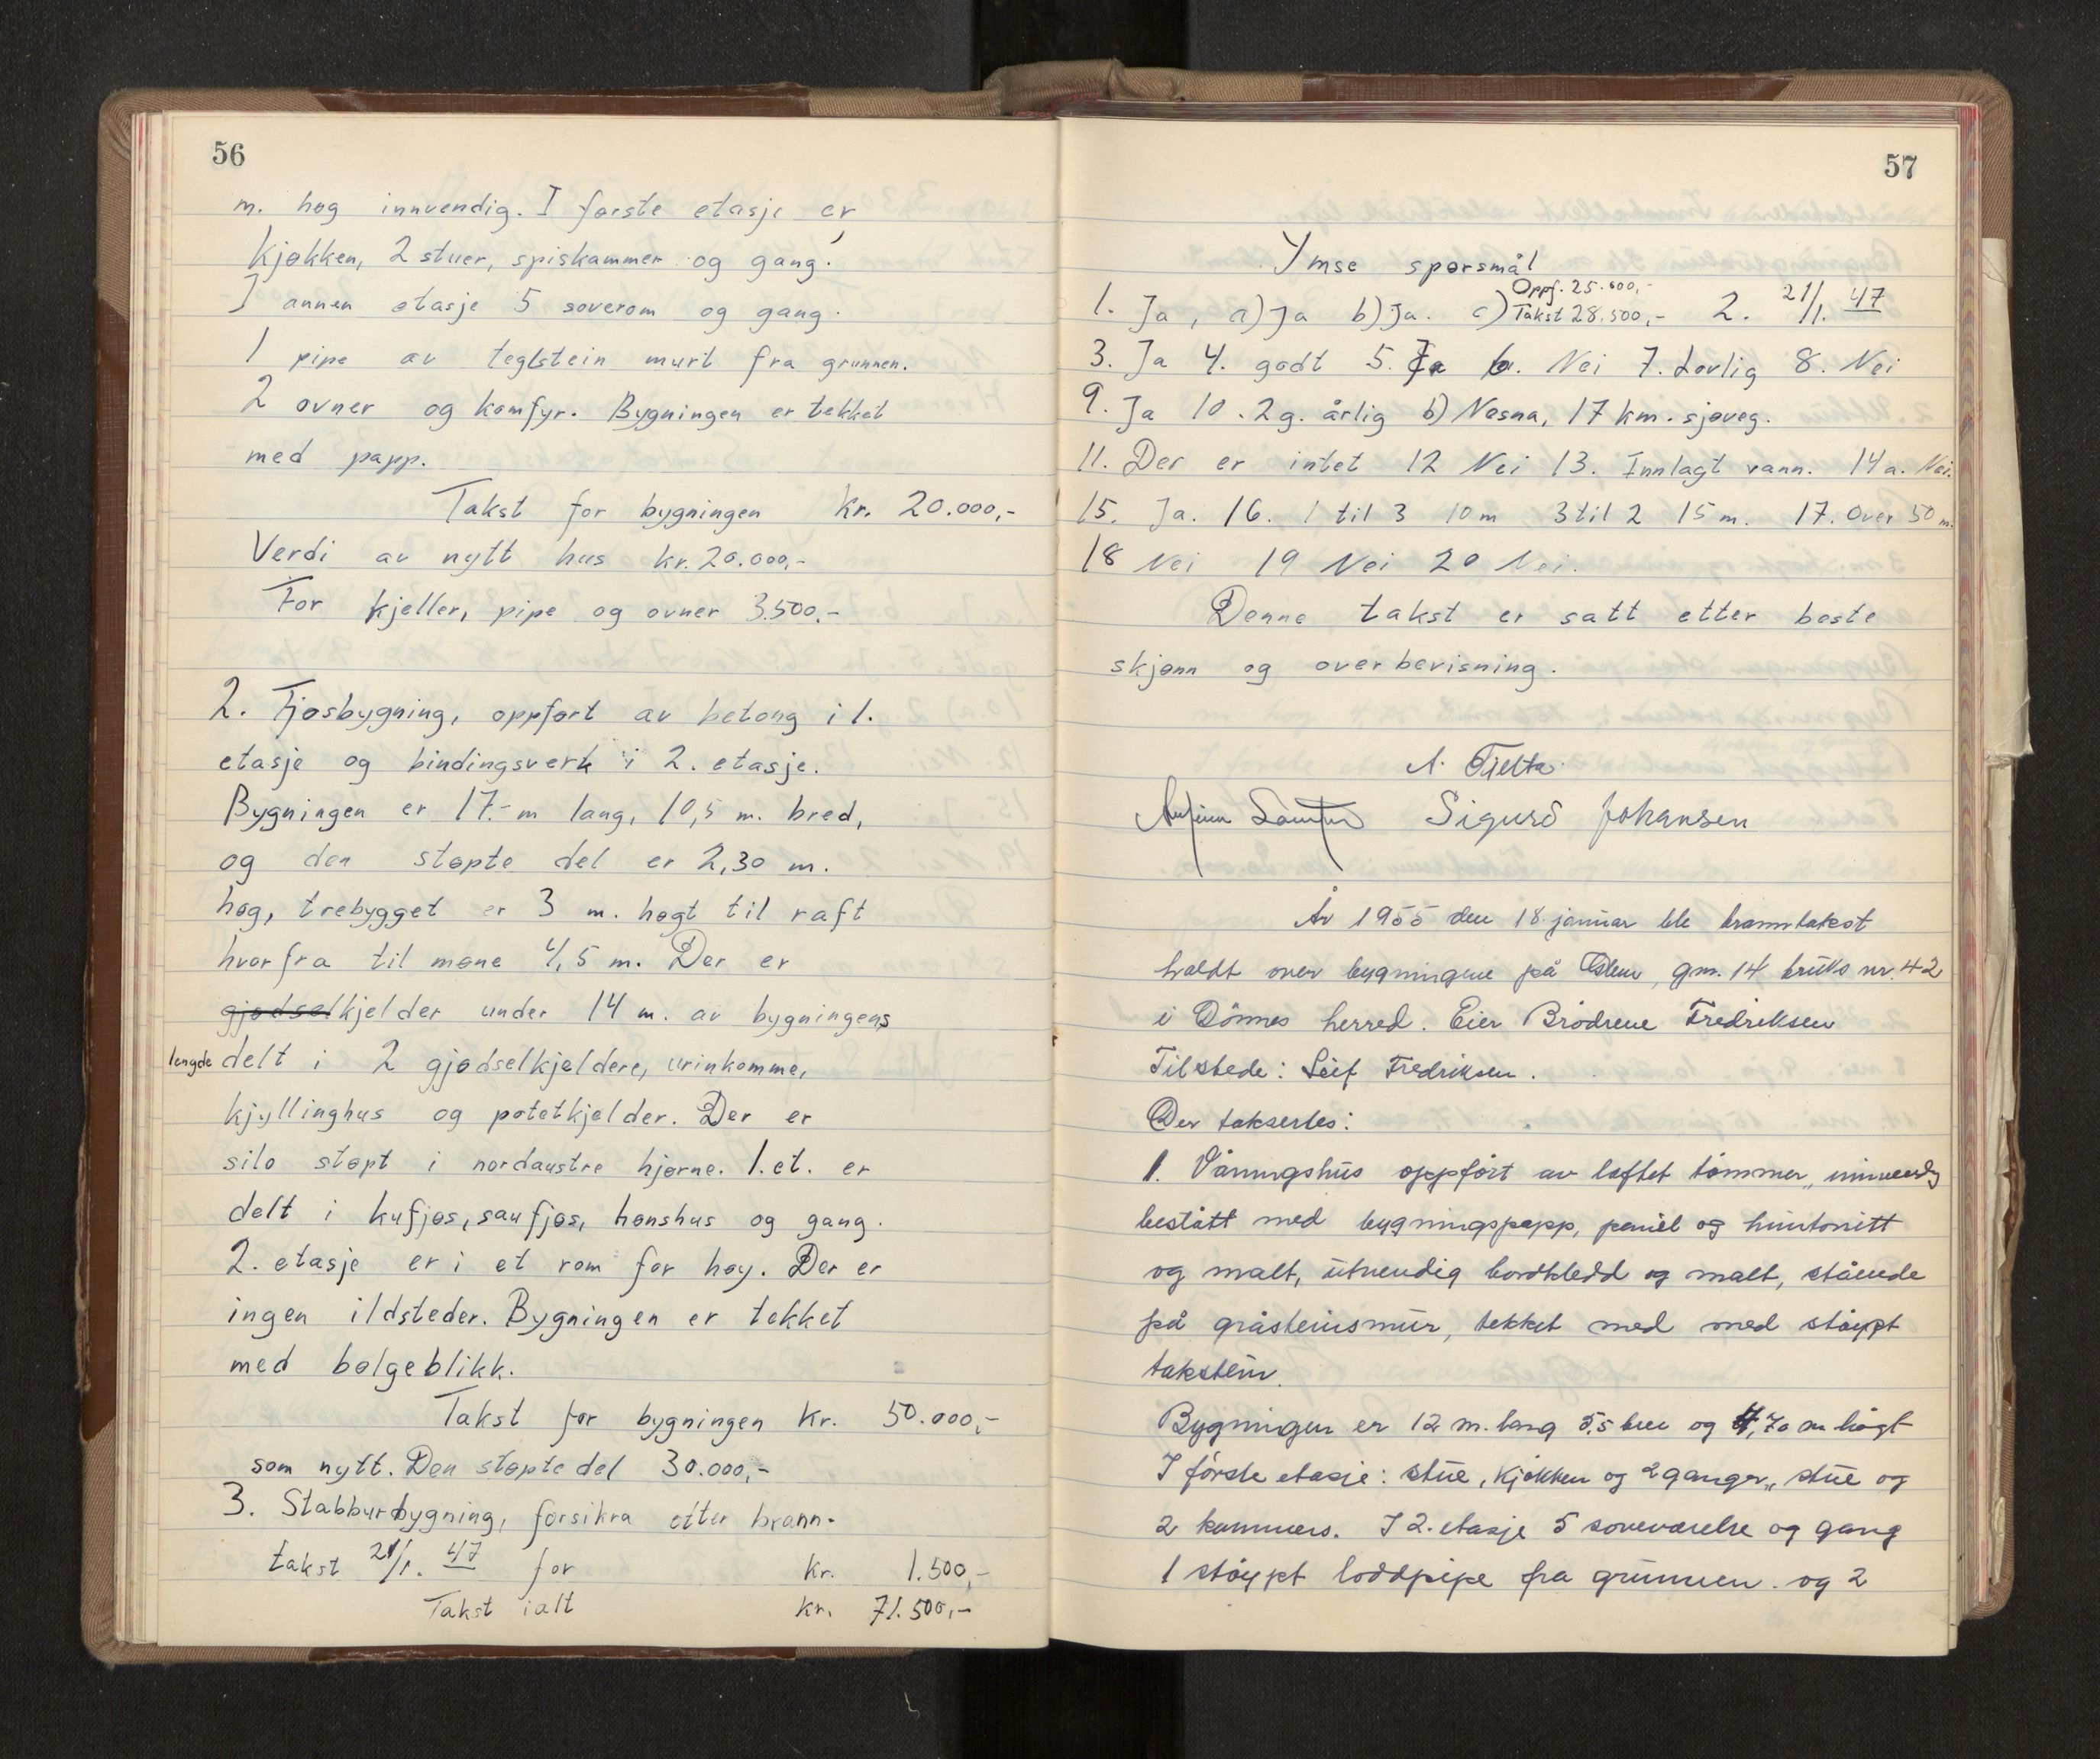 56
m. høg innvendig. I første etasje er
kjøkken, 2 stuer, spiskammer og gang.
I annen etasje 5 soverom og gang.
1 pipe av teglstein murt fra grunnen.
2 ovner og komfyr. Bygningen er tekket
med papp.
Takst for bygningen kr. 20.000,-
Verdi av nytt hus kr. 20.000,-
For kjeller, pipe og ovner 3.500.-
2. Fjøsbygning, oppført av betong i 1.
etasje og bindingsverk i 2. etasje.
Bygningen er 17.- m lang, 10,5 m. bred,
og den støpte del er 2,30 m.
høg, trebygget er 3 m. høgt til raft
hvorfra til møne 4,5 m. Der er
gjødselkjelder under 14 m. av bygningens
lengde delt i 2 gjødselkjeldere, urinkomme,
kjyllinghus og potetkjelder. Der er
silo støpt i nordaustre hjørne. 1. et. er
delt i kufjøs, saufjøs, hønshus og gang.
2. etasje er i et rom for høy. Der er
ingen ildsteder. Bygningen er tekket
med bølgeblikk.
Takst for bygningen kr. 50.000,-
som nytt. Den støpte del 30.000,-
3. Stabbursbygning, forsikra etter brann-
takst 21/1. 47 for kr. 1.500,-
Takst ialt kr. 71.500,-
57
Ymse spørsmål
1. Ja, a) Ja b) Ja. c) Oppf. 25.600,- Takst 28.500,- 2. 21/1. 47
3. Ja 4. godt 5. Ja 6. Nei 7. Lovlig 8. Nei
9. Ja 10. 2 g. årlig b) Nesna, 17 km. sjøveg.
11. Der er intet 12 Nei 13. Innlagt vann. 14 a. Nei.
15. Ja. 16. 1 til 3 10 m 3 til 2 15 m. 17. Over 50 m.
18 Nei 19 Nei 20 Nei.
Denne takst er satt etter beste
skjønn og overbevisning.
A. Tjelta
Sigurd Johansen
År 1955 den 18. januar ble branntakst
holdt over bygningene på gnr. 14 bruks nr. 42
i Dönnes herred. Eier Brödrene Fredriksen
Tilstede: Leif Fredriksen.
Der taksertes:
1. Våningshus oppfört av laftet tömmer, innvendig
bestått med bygningspapp, panel og huntonitt
og malt, utvendig bordkledd og malt, stående
på gråsteinsmur, tekket med med stöypt
takstein.
Bygningen er 12 m. lang 5,5 bre og 4,70 m högt
I förste etasje: stue, kjökken og 2 ganger, stue og
2 kammers. I 2. etasje 5 soveværelse og gang
1 stöypt loddpipe fra grunnen. og 2